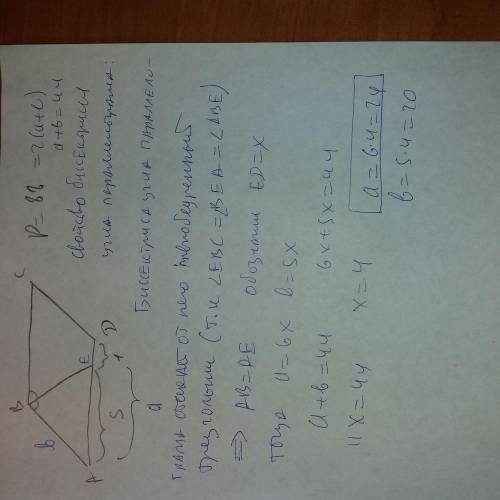 B
C
b
A
E
D
5
1
a
P = 88 = 2(a+b)
a+b=44
свойство биссектрисы
угла параллелограмма:
Биссектриса угла параллело-
грамма отсекает от него равнобедренный
треугольник (т.к ∠EBC = ∠BEA = ∠ABE)
⇒ AB=AE обозначим ED=x
тогда a=6x b=5x
a+b=44 6x+5x=44
11x=44 x=4
a=6·4=24
b=5·4=20